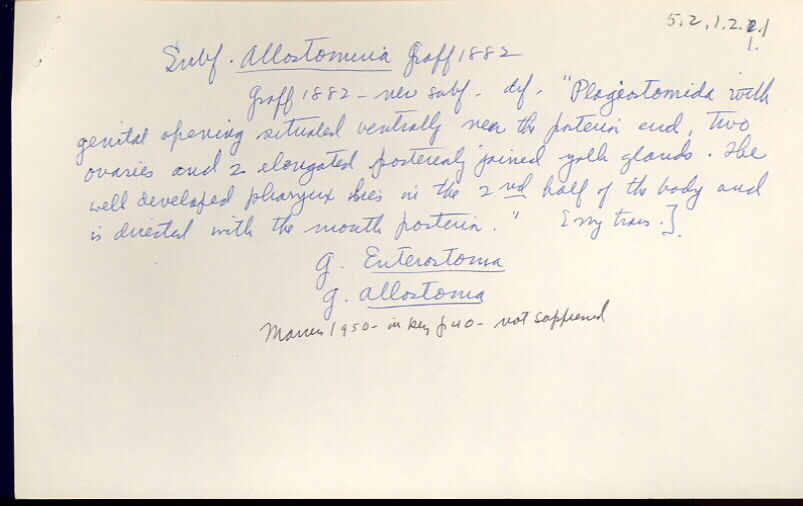 5.2.1.2.2.1
1.
Subf. Allostomina Graff 1882
Graff 1882 - new subf. df. "Plagiostomida with
genital opening situated ventrally near the posterior end, two
ovaries and 2 elongated posteriorly joined yolk glands. The
well developed pharynx lies in the 2nd half of the body and
is directed with the mouth posterior." [my trans.]
g. Enterostoma
g. Allostoma
Marcus 1950 - in key p 40 - not